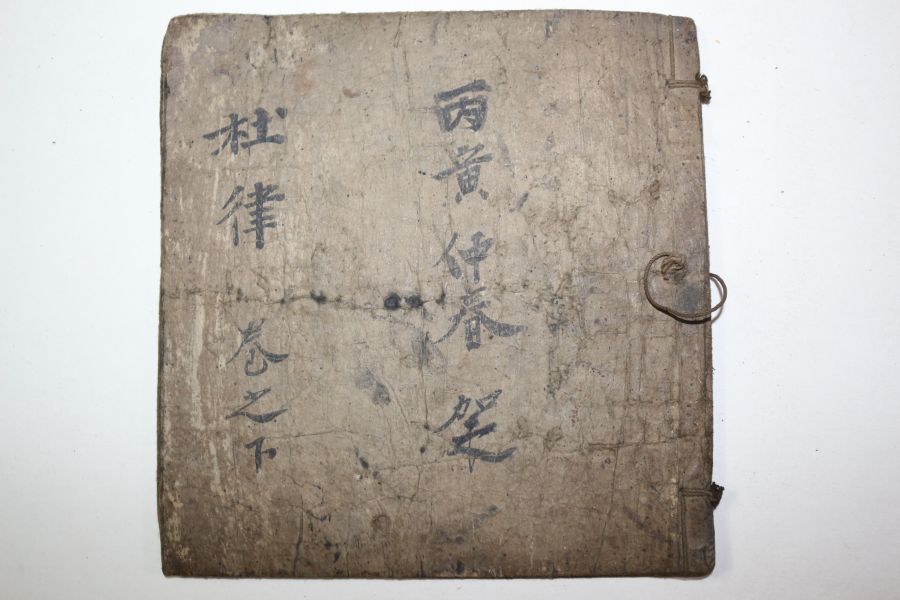 丙黄仲春 架
杜律 卷之下